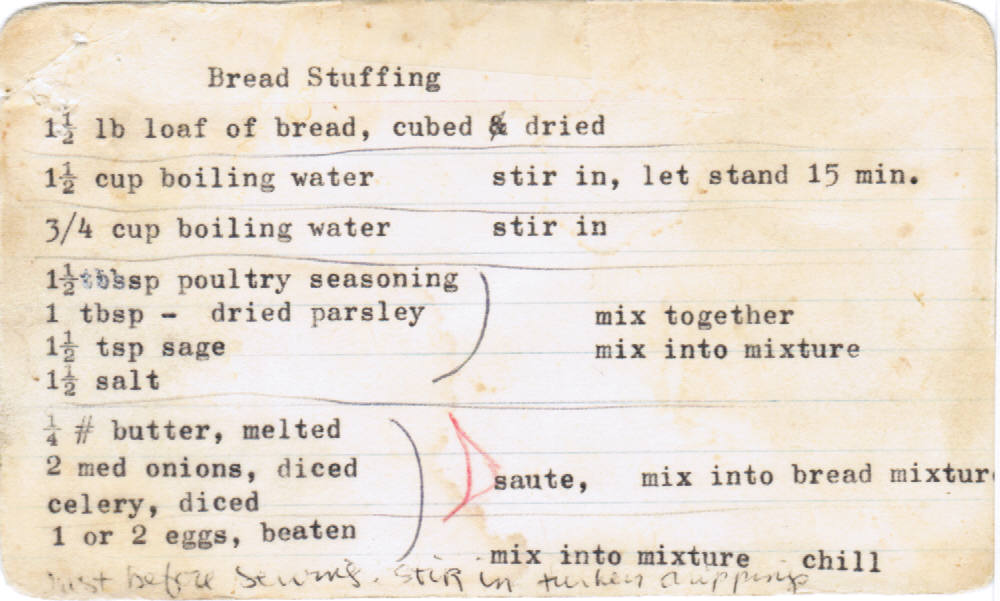 Bread Stuffing
1½ lb loaf of bread, cubed & dried
1½ cup boiling water stir in, let stand 15 min.
3/4 cup boiling water stir in
1½ poultry seasoning
1 tbsp - dried parsley mix together
1½ tsp sage mix into mixture
1½ salt
¼ # butter, melted
2 med onions, diced saute, mix into bread mixture
celery, diced
1 or 2 eggs, beaten
mix into mixture chill
Just before serving. stir in turkey drippings